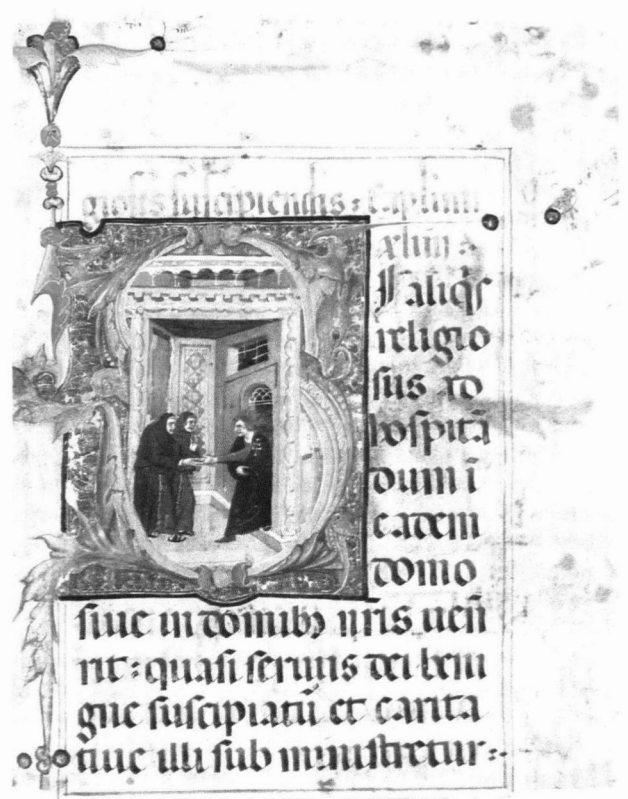 giosis suscipiendis : Capitulũ
xliiij :
Si aliq̃s
religio
sus ad
hospitã
dum ĩ
eadem
domo
siue in domibꝫ nr̃is uen̄
rit : quasi seruus dei beni
gne suscipiatũ et carita
tiue illi sub ministretur :